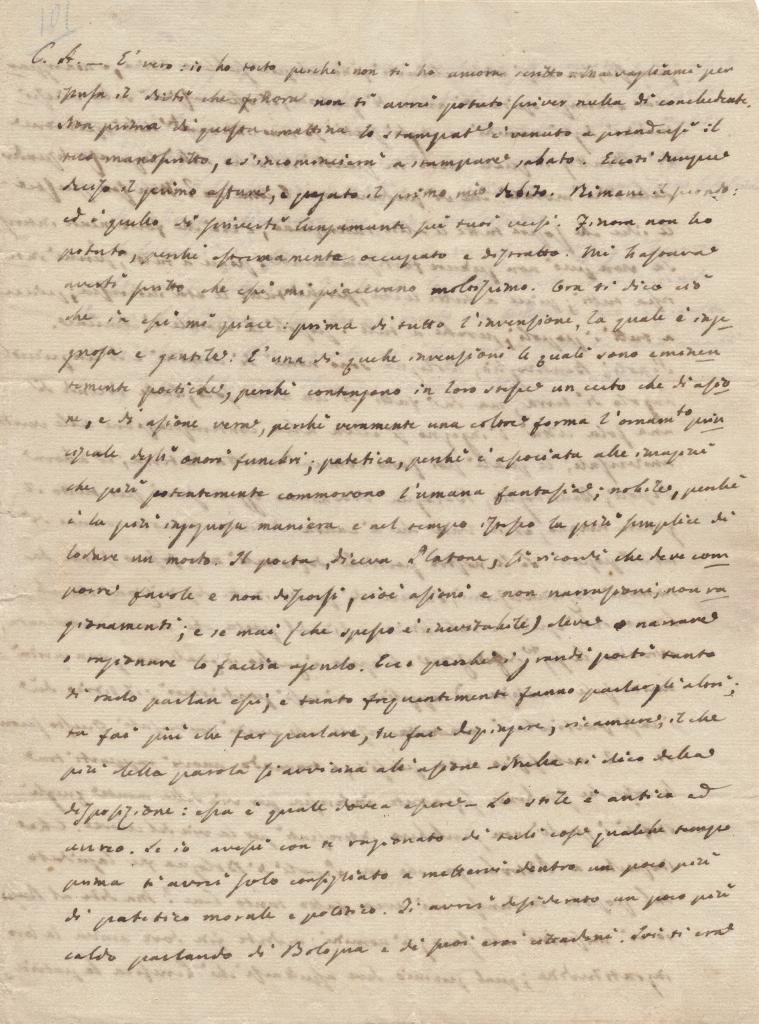 101
C. A. — E' vero: io ho torto perchè non ti ho ancora scritto. Ma vagliami per
iscusa il dirti che finora non ti avrei potuto scriver nulla di concludente.
Non prima di questa mattina lo stampatore è venuto a prendersi il
tuo manoscritto, e s'incomincierà a stampare sabato. Eccoti dunque
deciso il primo affare, e pagato il primo mio debito. Rimane il secondo:
ed è quello di scriverti lungamente su' tuoi versi. Finora non ho
potuto, perchè estremamente occupato e distratto. Mi bastava
averti scritto che essi mi piacevano moltissimo. Ora ti dico ciò
che in essi mi piace: prima di tutto l'invenzione, la quale è inge-
gnosa e gentile: E' una di quelle invenzioni le quali sono eminen
temente poetiche, perchè contengono in loro stesse un certo che di azio
ne, e di azione vera, perchè veramente una coltre forma l'ornamto prin
cipale degli onori funebri; patetica, perchè è associata alle imagini
che più potentemente commovono l'umana fantasia; nobile, perchè
è la più ingegnosa maniera e nel tempo istesso la più semplice di
lodare un morto. Il poeta, diceva Platone, si ricordi che deve com
porre favole e non discorsi, cioè azioni e non narrazioni, non ra
gionamenti; e se mai (che spesso è inevitabile) deve o narrare
o ragionare lo faccia agendo. Ecco perchè i grandi poeti tanto
di rado parlan essi, e tanto frequentemente fanno parlar gli altri;
tu fai più che far parlare, tu fai dipingere, ricamare, il che
più della parola si avvicina all'azione — Nulla ti dico della
disposizione: essa è quale dovea essere — Lo stile è antico ed
aureo. Se io avessi con te ragionato di tali cose qualche tempo
prima ti avrei solo consigliato a mettervi dentro un poco più
di patetico morale e politico. Ti avrei desiderato un poco più
caldo parlando di Bologna e di suoi eroi cittadini. Ivi ti era